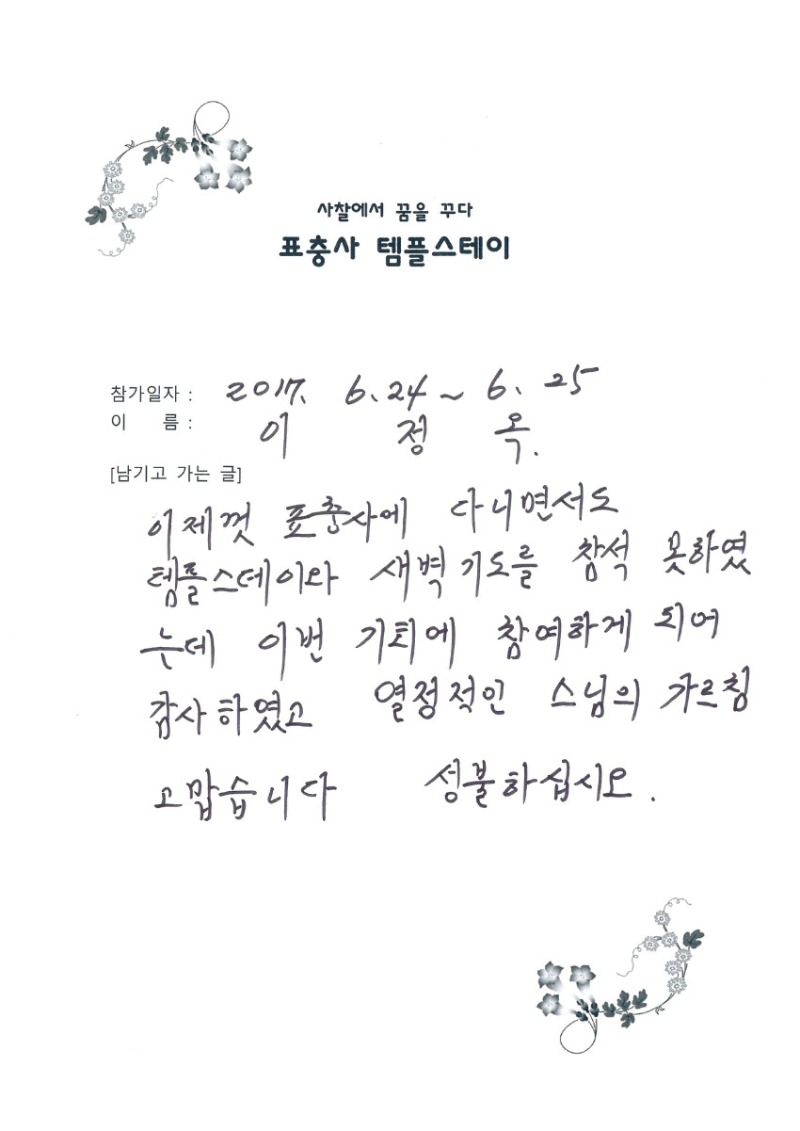 사찰에서 꿈을 꾸다
표충사 템플스테이
참가일자 : 2017. 6.24 ~ 6. 25
이 름 : 이 정 옥.
[남기고 가는 글]
이제껏 표충사에 다니면서도
템플스테이와 새벽기도를 참석 못하였
는데 이번 기회에 참여하게 되어
감사하였고 열정적인 스님의 가르침
고맙습니다 성불하십시오.